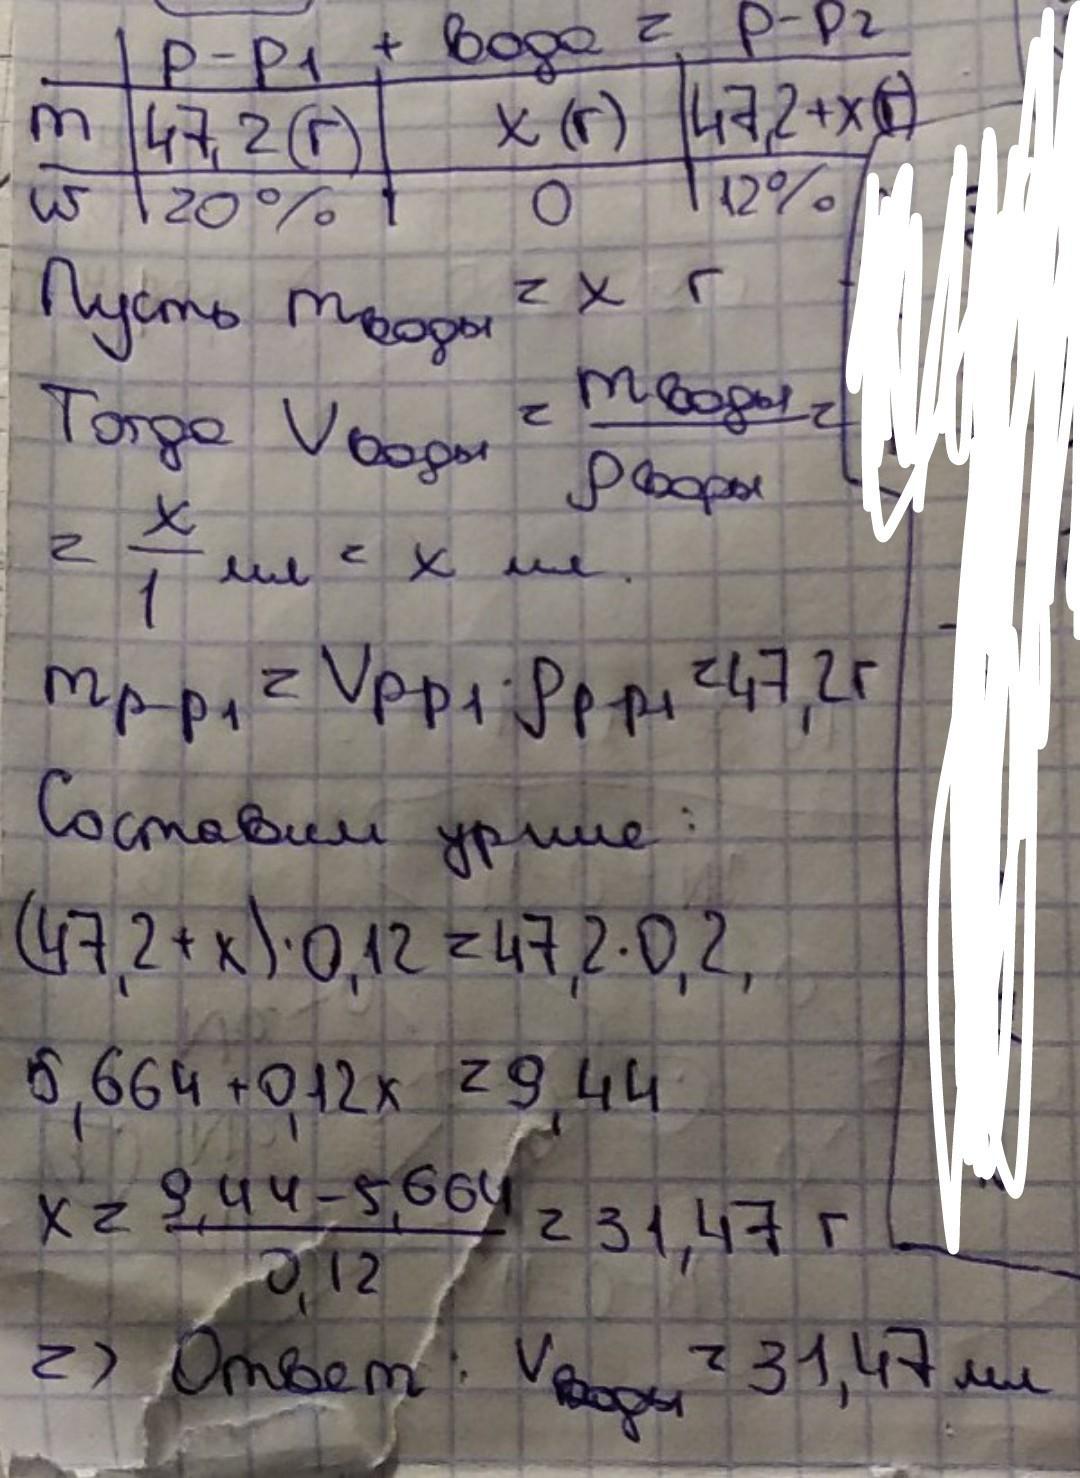 р-р1 + вода = р-р2
m 47,2(г) x (г) 47,2+x(г)
ω 20% 0 12%
Пусть mводы = x г
Тогда Vводы = mводы/ρводы =
= x/1 мл = x мл.
mр-р1 = Vрр1·ρр-р1 =47,2г
Составим ур-ние:
(47,2+x)·0,12=47,2·0,2,
5,664+0,12x =9,44
x= 9,44-5,664/0,12 =31,47 г
=> Ответ: Vводы =31,47 мл